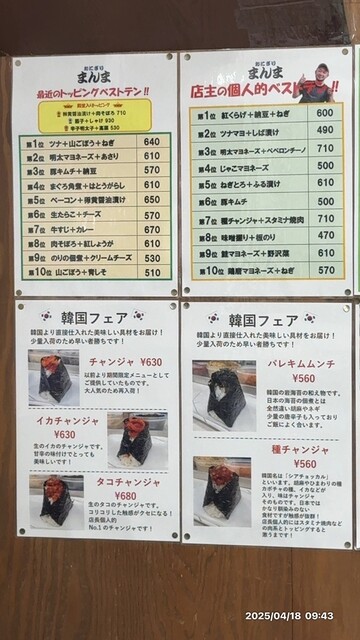 おにぎり
まんま
最近のトッピングベストテン!!
卵黄醤油漬け+肉そぼろ 710
筋子+しゃけ 930
辛子明太子+高菜 530
第1位 ツナ+山ごぼう+ねぎ 640
第2位 明太マヨネーズ+あさり 610
第3位 豚キムチ+納豆 570
第4位 まぐろ角煮+はとうがらし 610
第5位 ベーコン+得黄醤油漬け 650
第6位 生たらこ+チーズ 570
第7位 牛すじ+カレー 670
第8位 肉そぼろ+紅しょうが 610
第9位 のりの佃煮+クリームチーズ 530
第10位 山ごぼう+青しそ 510
おにぎり
まんま
店主の個人的ベストテン!!
第1位 紅くらげ+納豆+ねぎ 600
第2位 ツナマヨ+しば漬け 490
第3位 明太マヨネーズ+ペペロンチーノ 710
第4位 じゃこマヨネーズ 500
第5位 ねぎとろ+ふる漬け 610
第6位 豚キムチ 500
第7位 種チャンジャ+スタミナ焼肉 710
第8位 味噌握り+板のり 470
第9位 鮭マヨネーズ+野沢菜 610
第10位 鶏唐マヨネーズ+ねぎ 570
韓国フェア
韓国より直接仕入れた美味しい具材をお届け!
少量入荷のため早い者勝ちです!
チャンジャ ¥630
以前より期間限定メニューとして
ご提供していたものです。
大人気のため再入荷!
イカチャンジャ
¥630
生のイカのチャンジャです。
甘辛の味付けでとっても
美味しいです!
タコチャンジャ
¥680
生のタコのチャンジャです。
コリコリした触感がクセになる!
店長個人的
No.1のチャンジャです!
韓国フェア
韓国より直接仕入れた美味しい具材をお届け!
少量入荷のため早い者勝ちです!
パレキムムンチ
¥560
韓国の岩海苔の和え物です。
日本の海苔の佃煮とは
全然違い胡麻やネギ
少量の唐辛子も入っており
ご飯によく合います。
種チャンジャ
¥560
韓国名は「シアチョッカル」
といいます。胡麻やひまわりの種
カボチャの種、イカなどが
入り、味はチャンジャ
そのものです。日本では
かなり馴染みのない
食材ですが触感が抜群!
店長個人的にはスタミナ焼肉など
の肉系とトッピングすると
激うまです!
2025/04/18 09:43